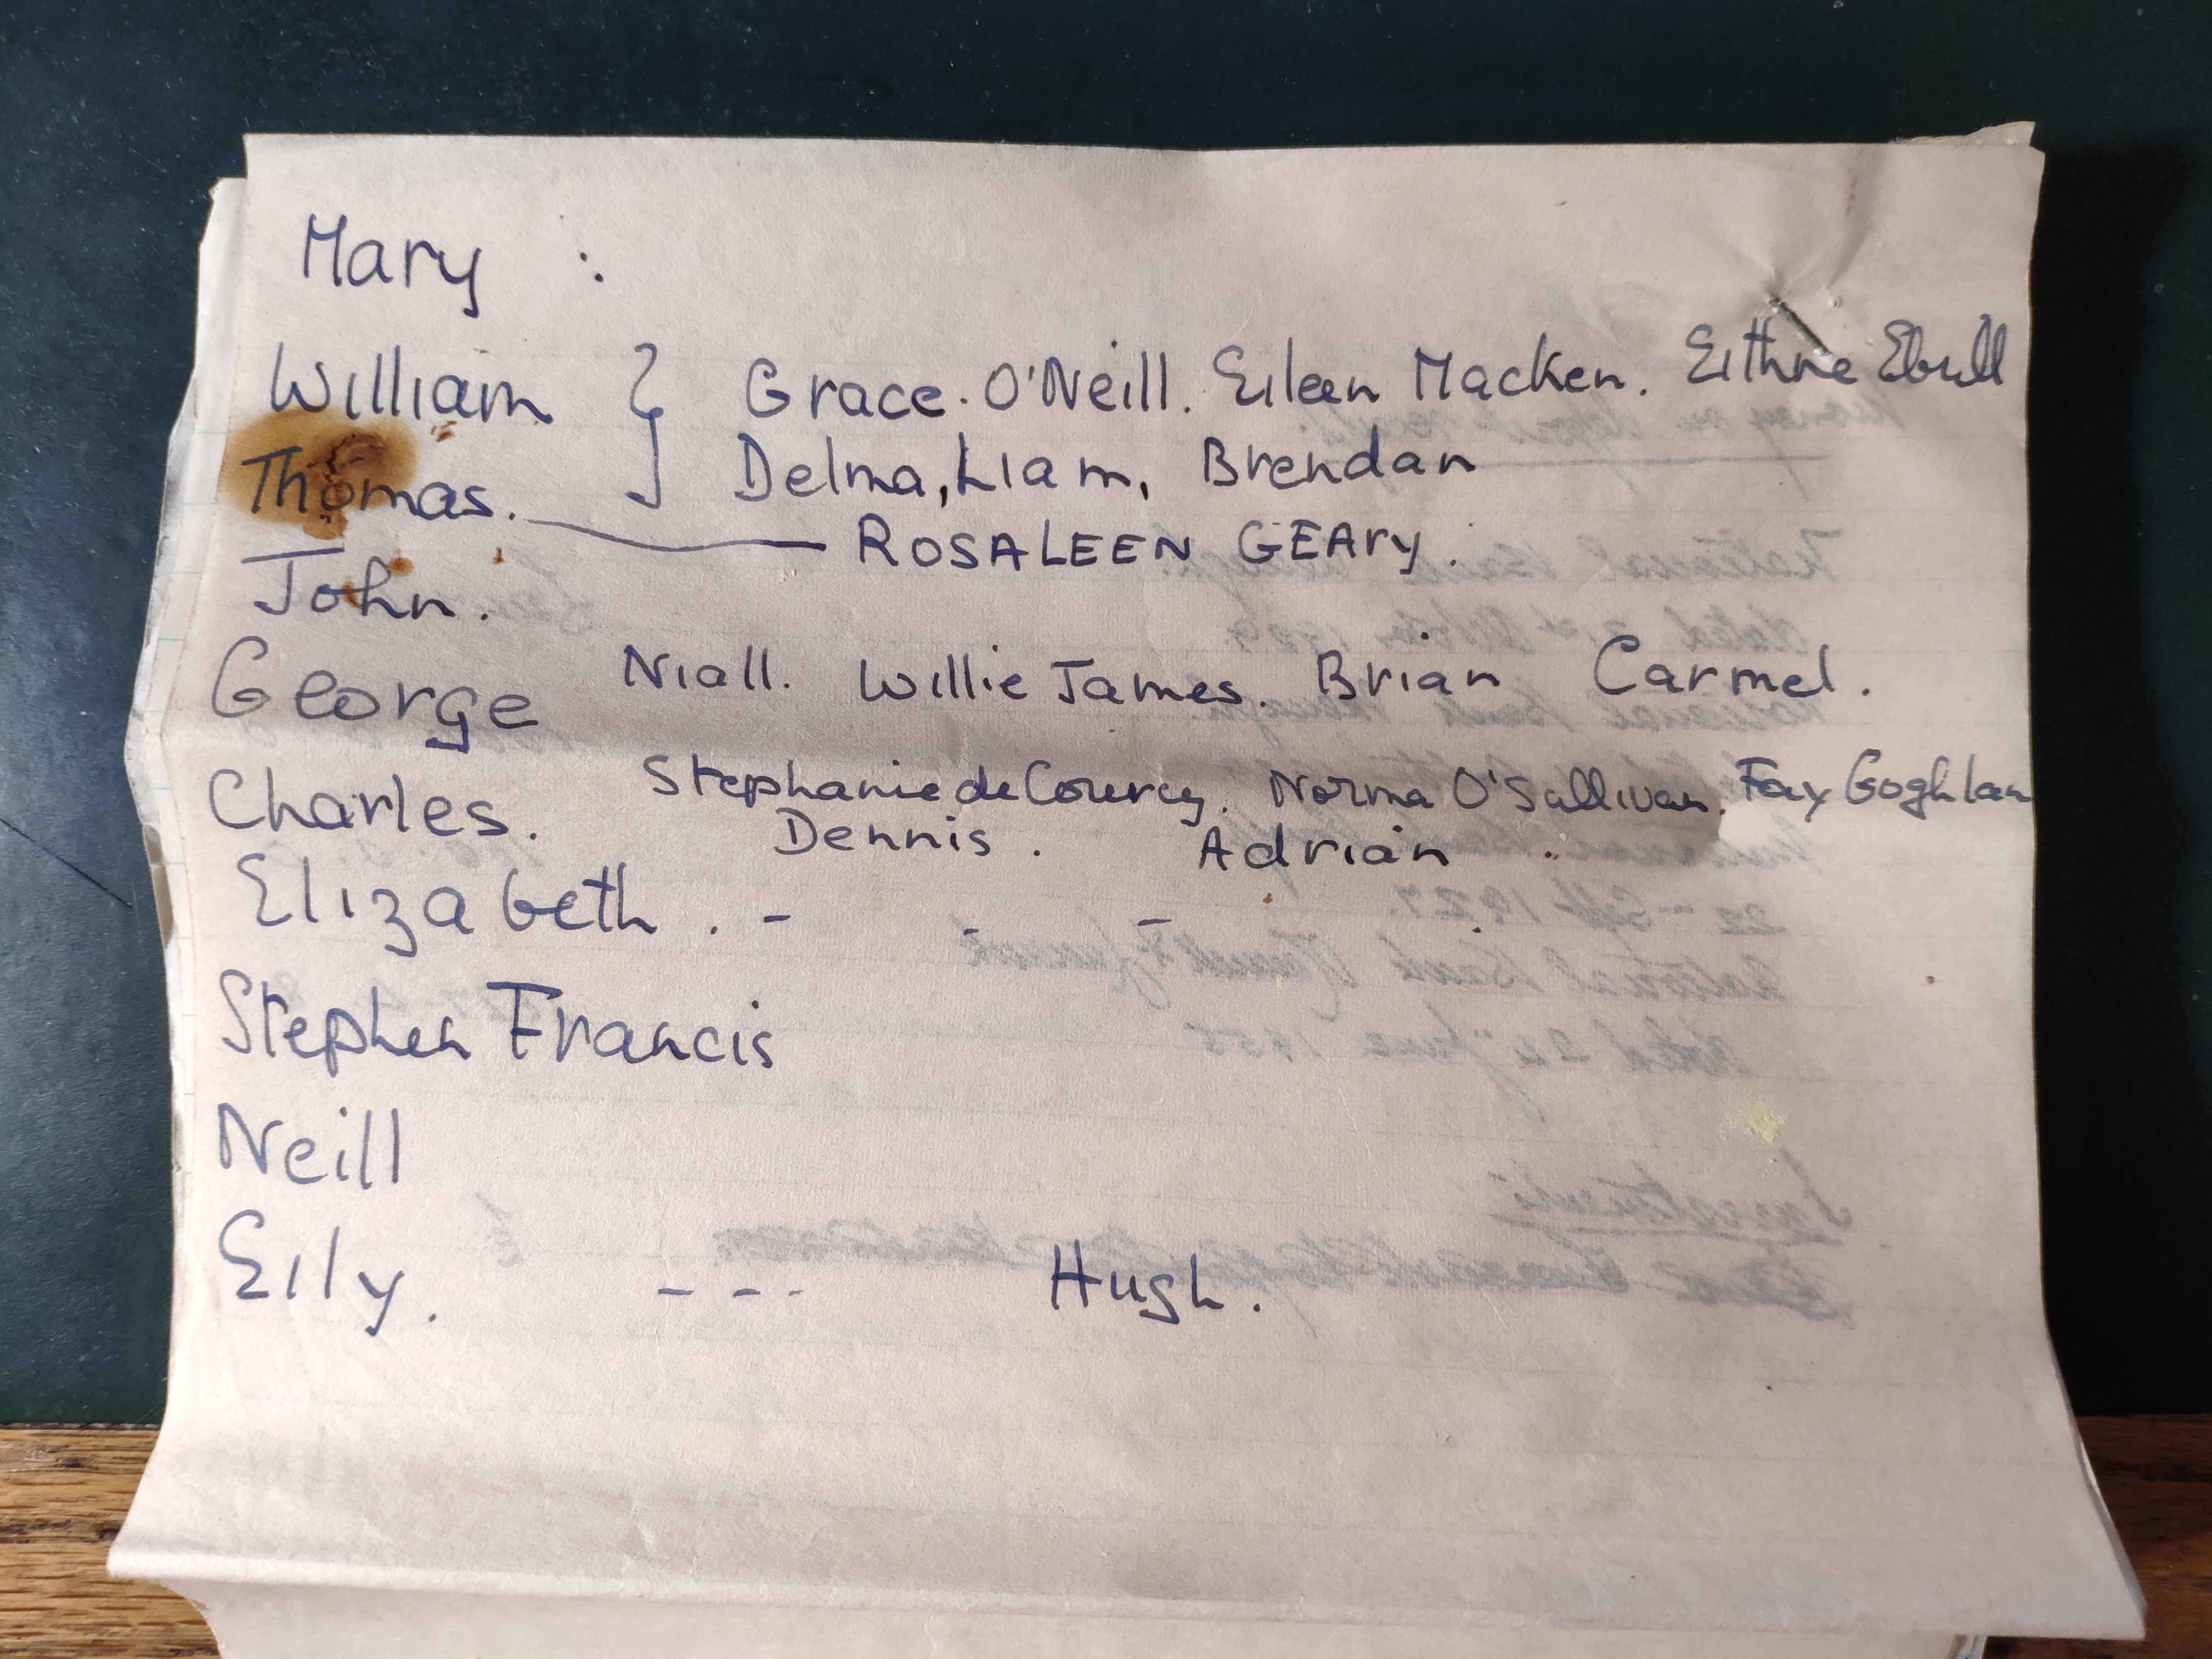 Mary :
William } Grace. O'Neill. Eileen Macken. Eithne
Delma, Liam, Brendan
Thomas. — ROSALEEN GEARY.
John.
George Niall. Willie James. Brian Carmel.
Charles. Stephanie de Courcy. Norma O'Sullivan. Fay Goghlan
Dennis. Adrian
Elizabeth. - - -
Stephen Francis
Neill
Eily. - - - Hugh.